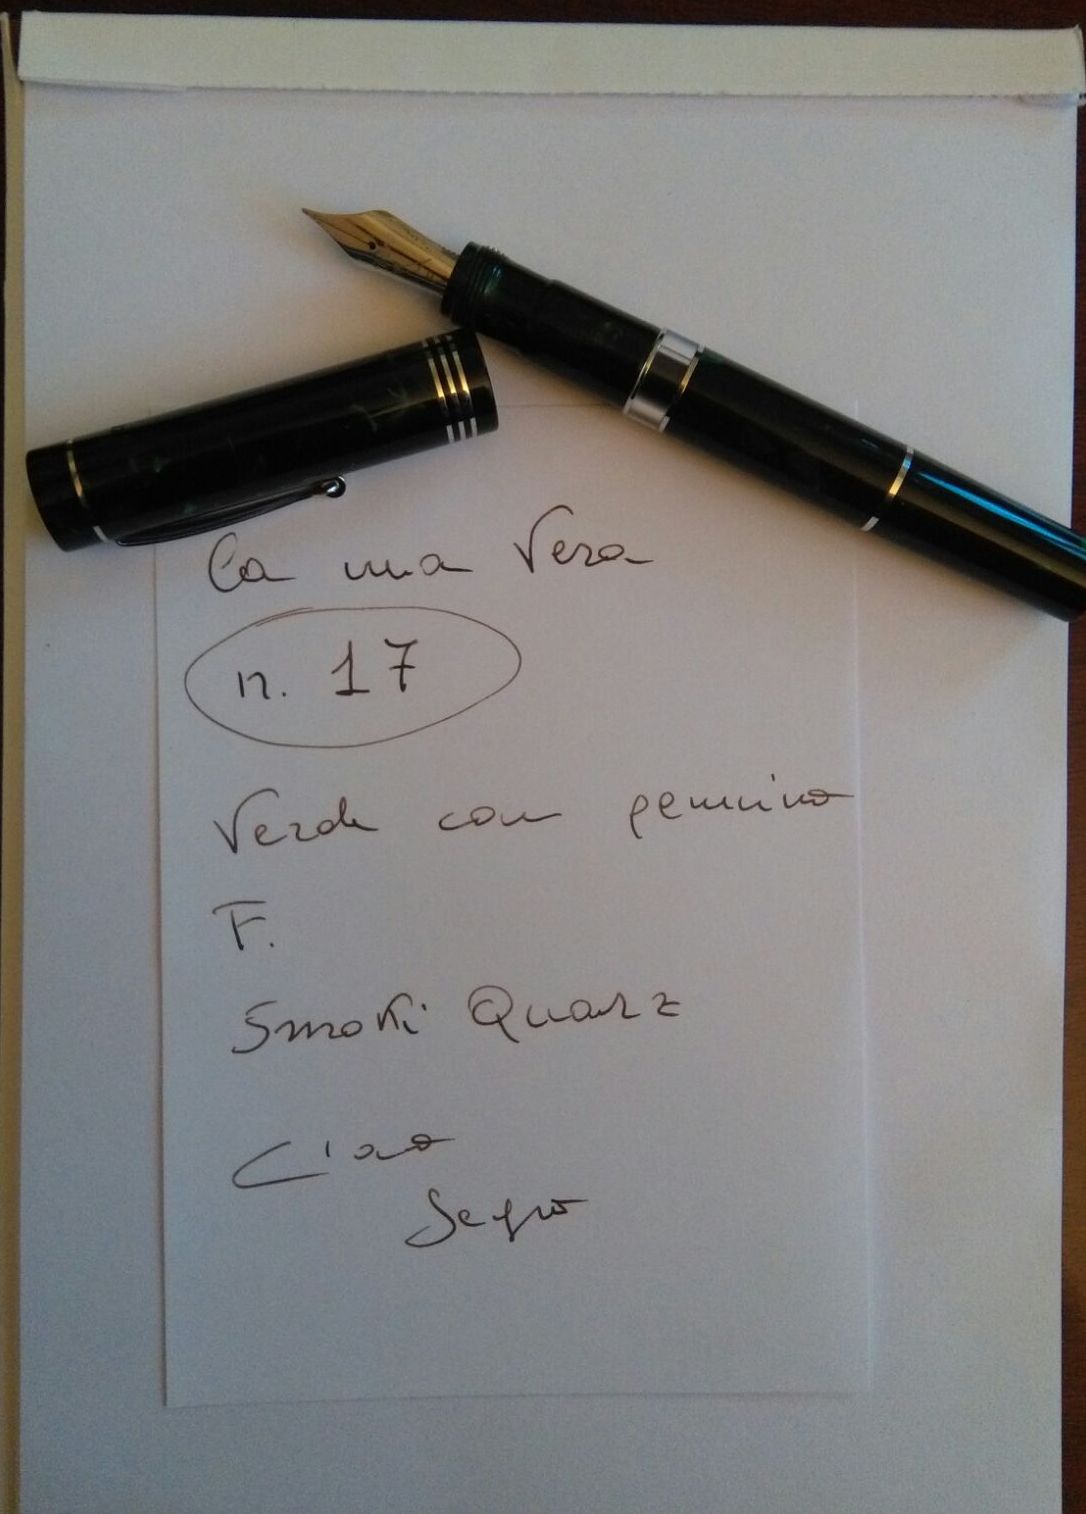 La mia Vera
n. 17
Verde con pennino
F.
Smoki Quarz
Ciao
Sergio